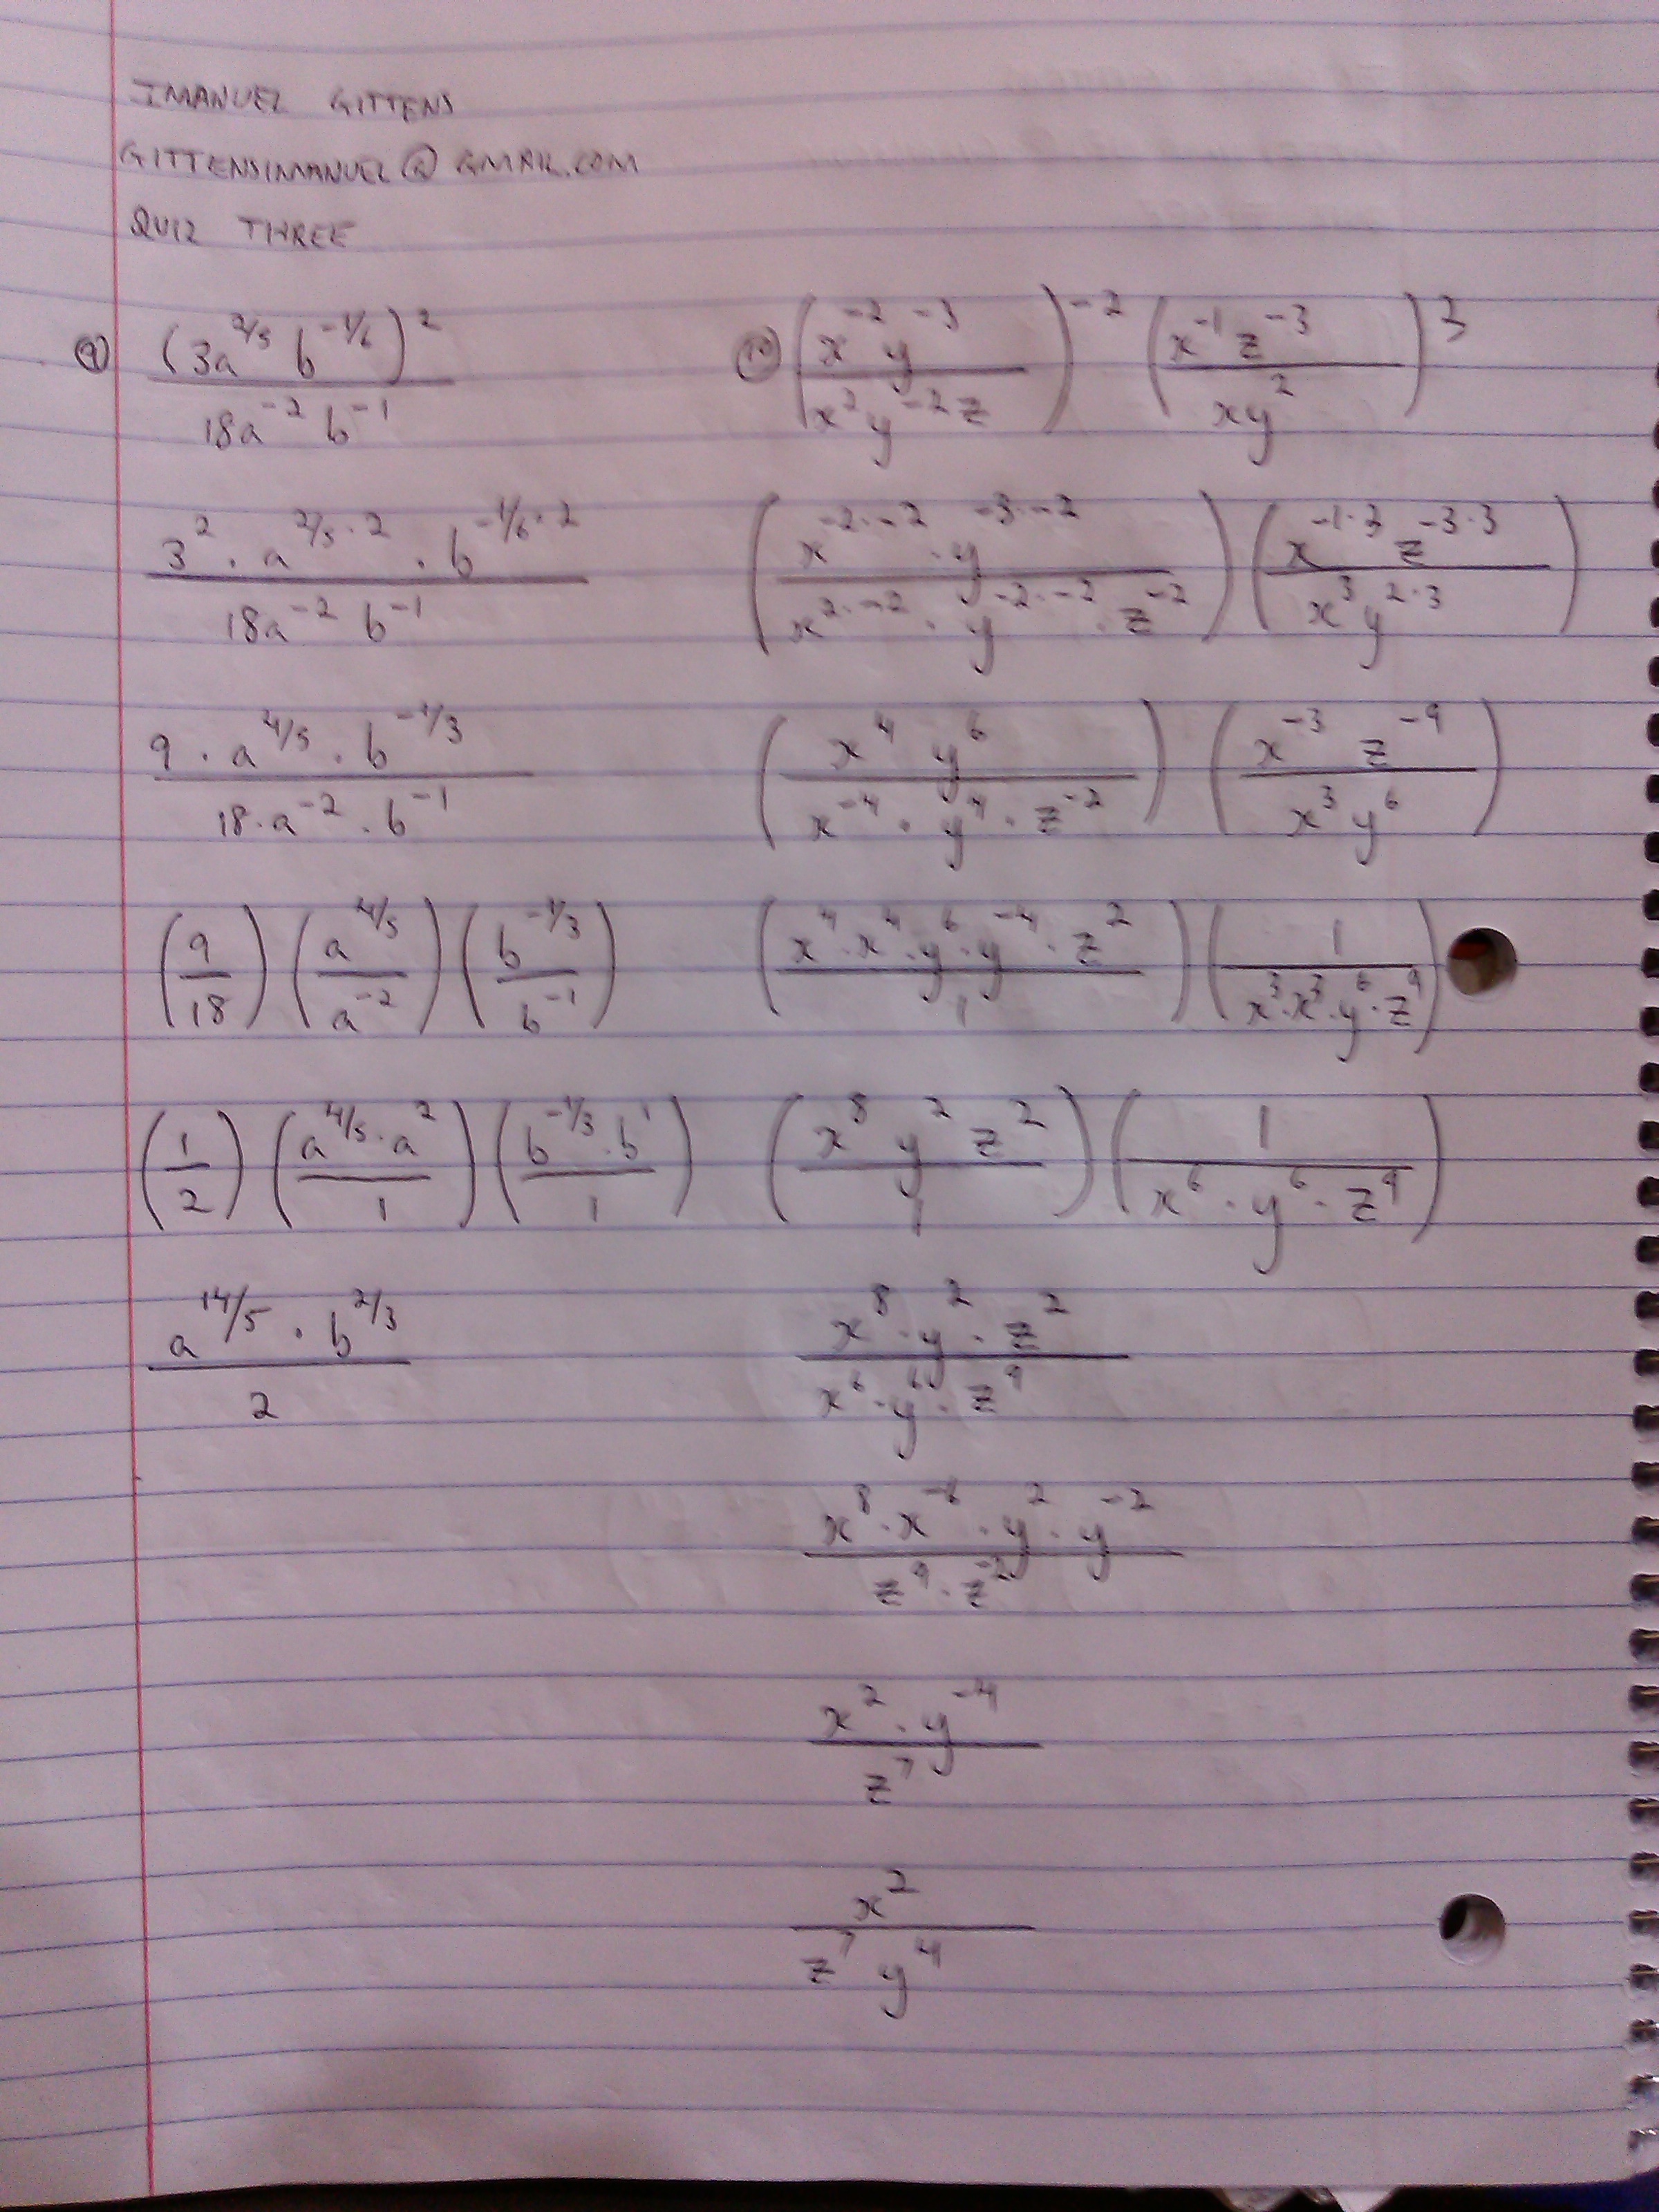 IMANUEL GITTENS
GITTENSIMANUEL@GMAIL.COM
QUIZ THREE
⑨ (3a^2/5 b^-1/6)^2 / 18a^-2 b^-1
3^2 · a^2/5·2 · b^-1/6·2 / 18a^-2 b^-1
9 · a^4/5 · b^-1/3 / 18·a^-2 · b^-1
(9/18) (a^4/5 / a^-2) (b^-1/3 / b^-1)
(1/2) (a^4/5 · a^2 / 1) (b^-1/3 · b^1 / 1)
a^14/5 · b^2/3 / 2
⑩ (x^-2 y^-3 / x^2 y^-2 z)^-2 (x^-1 z^-3 / xy^2)^3
(x^-2·-2 · y^-3·-2 / x^2·-2 · y^-2·-2 · z^-2) (x^-1·3 z^-3·3 / x^3 y^2·3)
(x^4 y^6 / x^-4 · y^4 · z^-2) (x^-3 z^-9 / x^3 y^6)
(x^4 · x^4 · y^6 · y^-4 · z^2 / 1) (1 / x^3 · x^3 · y^6 · z^9)
(x^8 y^2 z^2 / 1) (1 / x^6 · y^6 · z^9)
x^8 · y^2 · z^2 / x^6 · y^6 · z^9
x^8 · x^-6 · y^2 · y^-2 / z^9 · z^-2
x^2 · y^-4 / z^7
x^2 / z^7 y^4